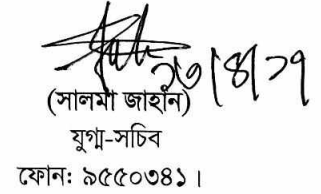 ২৩/৪/১৭
(সালমা জাহান)
যুগ্ম-সচিব
ফোন: ৯৫৫০৩৪১।